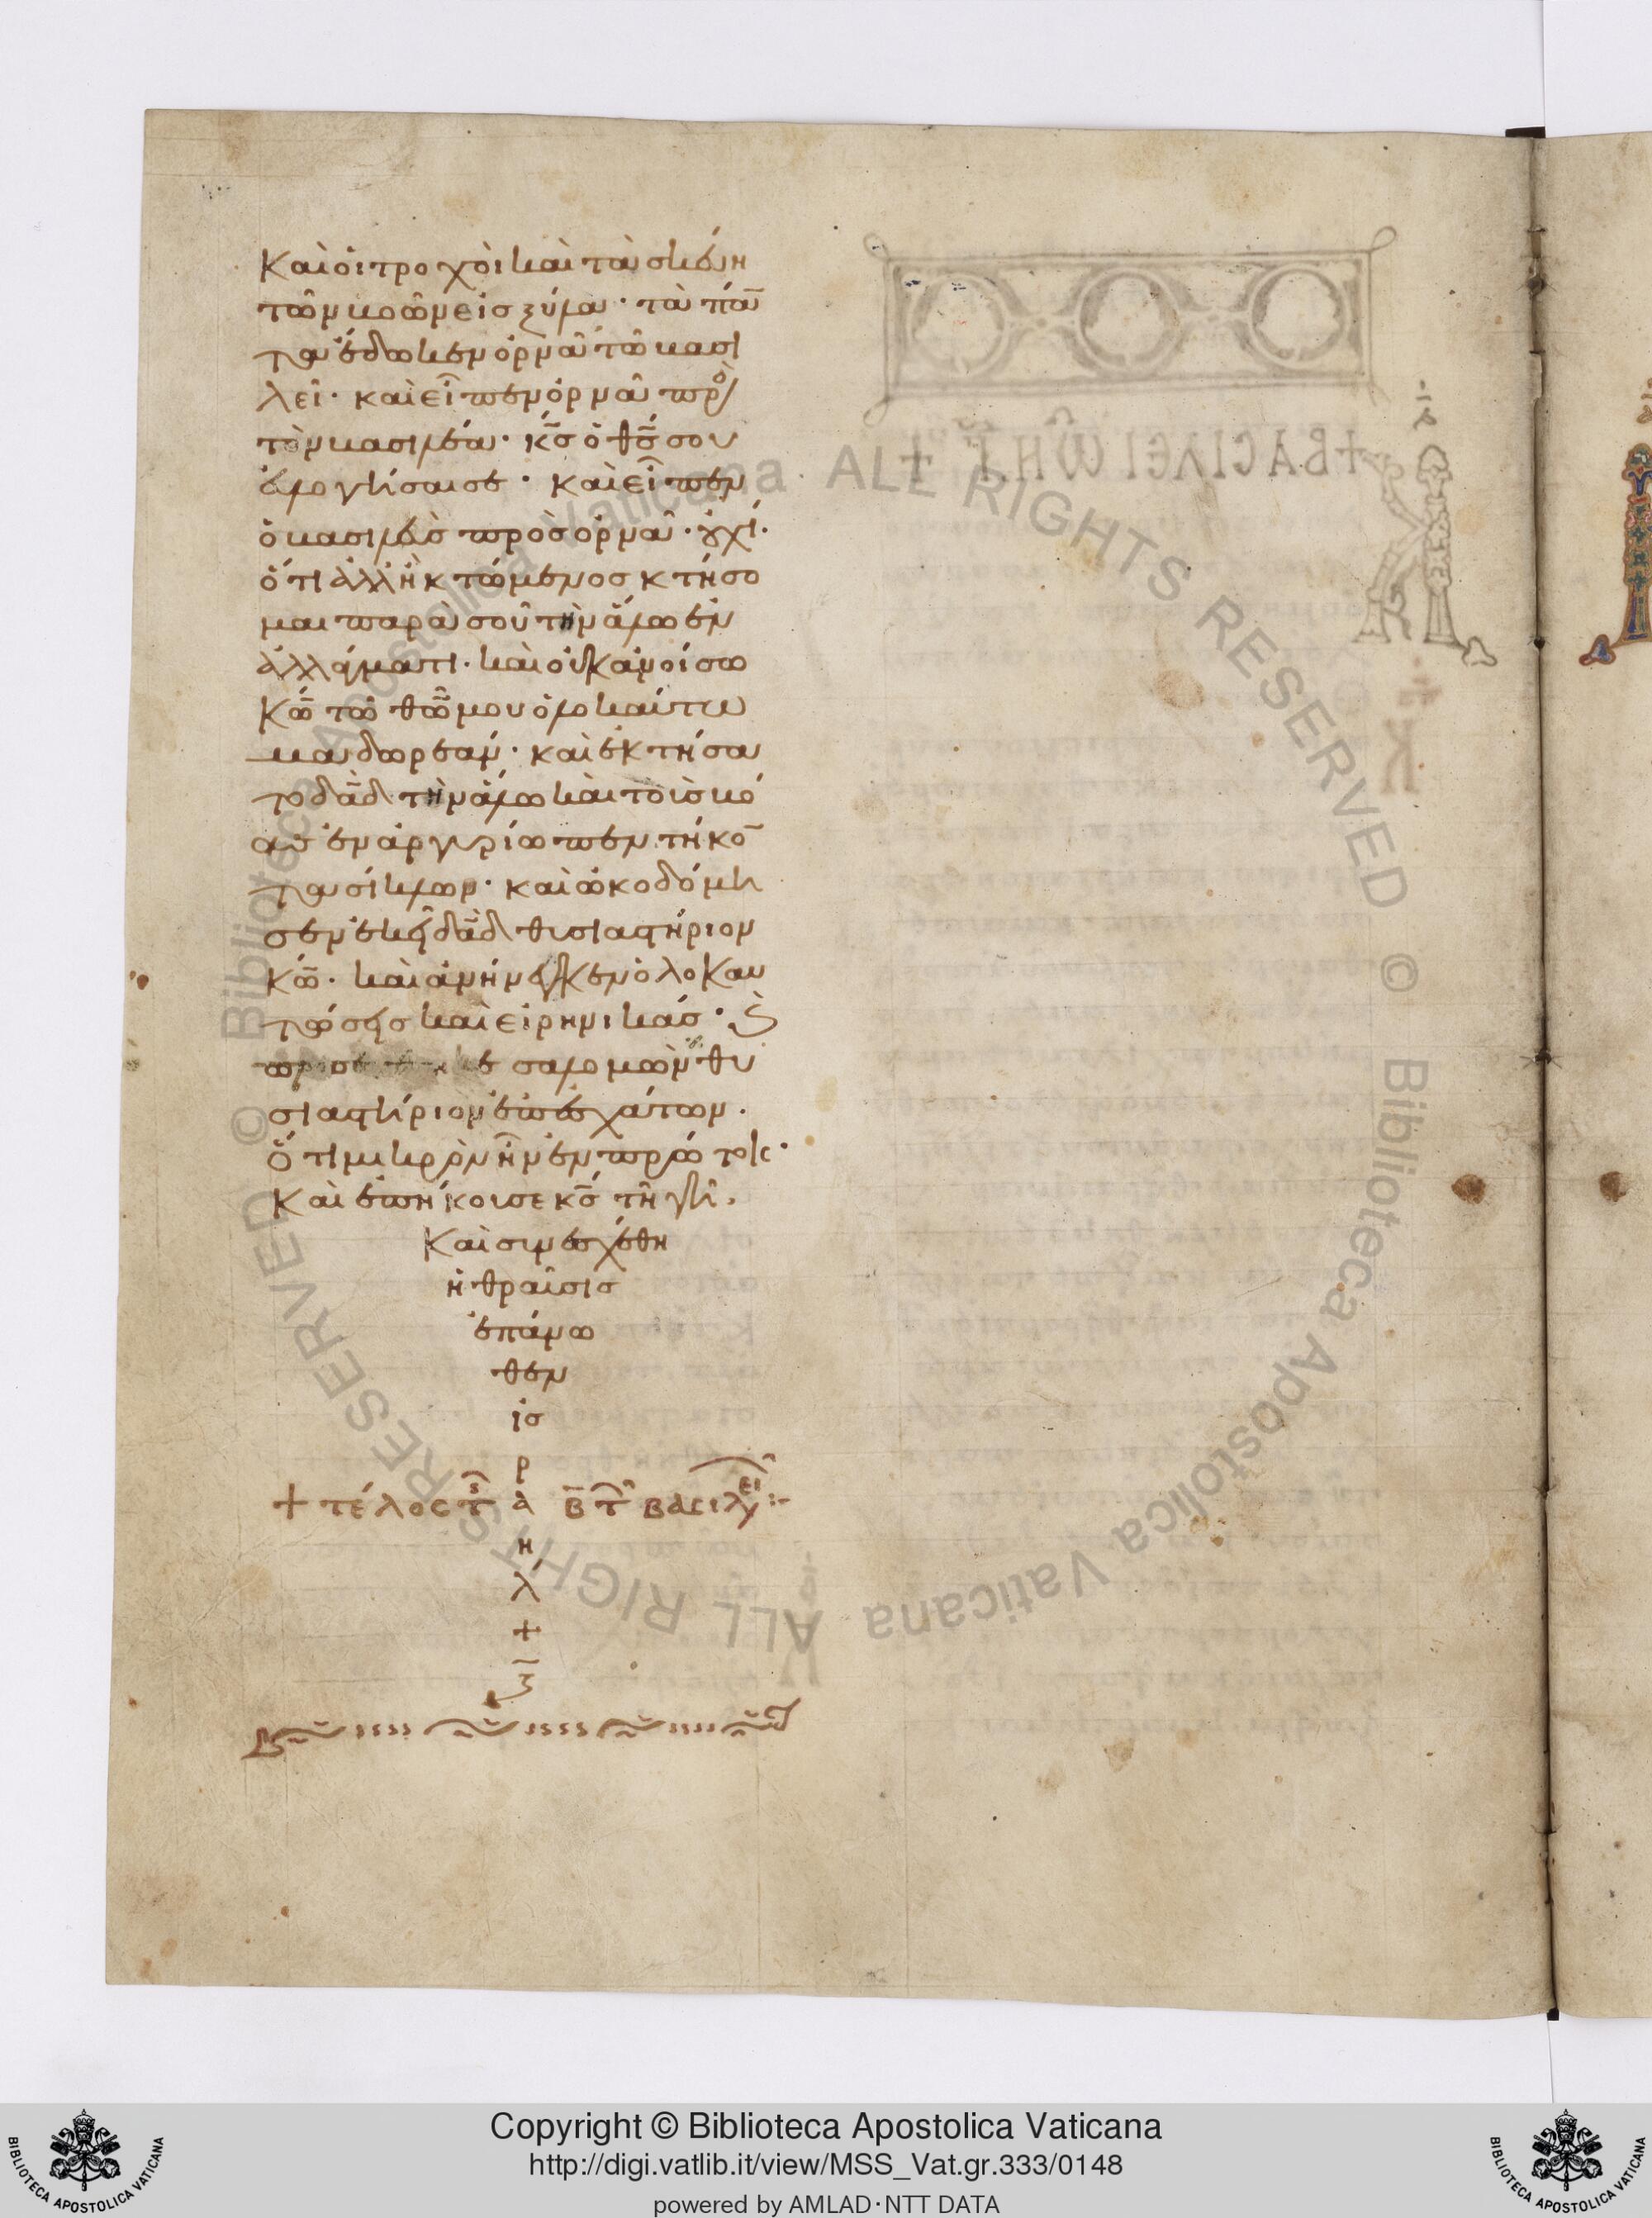 καὶ οἱ τροχοὶ καὶ τὰ σκεύη
τῶν βοῶν εἰς ξύλα· τὰ πάν
τα ἔδωκεν ὀρνὰ τῶ βασι
λεῖ· καὶ εἶπεν ὀρνὰ πρὸς
τὸν βασιλέα· κς ὁ θς σου
εὐλογήσαι σε· καὶ εἶπεν
ὁ βασιλεὺς πρὸς ὀρνὰ· οὐχί·
ὅτι ἀλλ ἢ κτώμενος κτήσο
μαι παρὰ σοῦ τὴν ἅλω ἐν
ἀλλάγματι· καὶ οὐκ ἀνοίσω
κω τῶ θω μου ὁλοκαύτω
μα δωρεάν· καὶ ἐκτήσα
το δαδ τὴν ἅλω καὶ τοὺς βό
ας ἐν ἀργυρίω πεντήκον
τα σίκλων· καὶ ὠκοδόμη
σεν ἐκεῖ δαδ θυσιαστήριον
κω· καὶ ἀνήνεγκεν ὁλοκαυ
τώσεις καὶ εἰρηνικάς· καὶ
σαλομὼν θυ
σιαστήριον ἐπ ἐσχάτων·
ὅτι μικρὸν ἦν ἐν πρώτοις·
καὶ ἐπήκουσε κς τῆ γῆ·
καὶ συνεσχέθη
ἡ θραῦσις
ἐπάνω
θεν
ισ
ρ
+ τέλος τ ὰ β τ βασιλει :-
η
λ
+
+ ΒΑCΙΛΕΙΩΝ Γ +
Copyright © Biblioteca Apostolica Vaticana
http://digi.vatlib.it/view/MSS_Vat.gr.333/0148
powered by AMLAD·NTT DATA
BIBLIOTECA APOSTOLICA VATICANA
BIBLIOTECA APOSTOLICA VATICANA
© Biblioteca Apostolica Vaticana ALL RIGHTS RESERVED
© Biblioteca Apostolica Vaticana ALL RIGHTS RESERVED